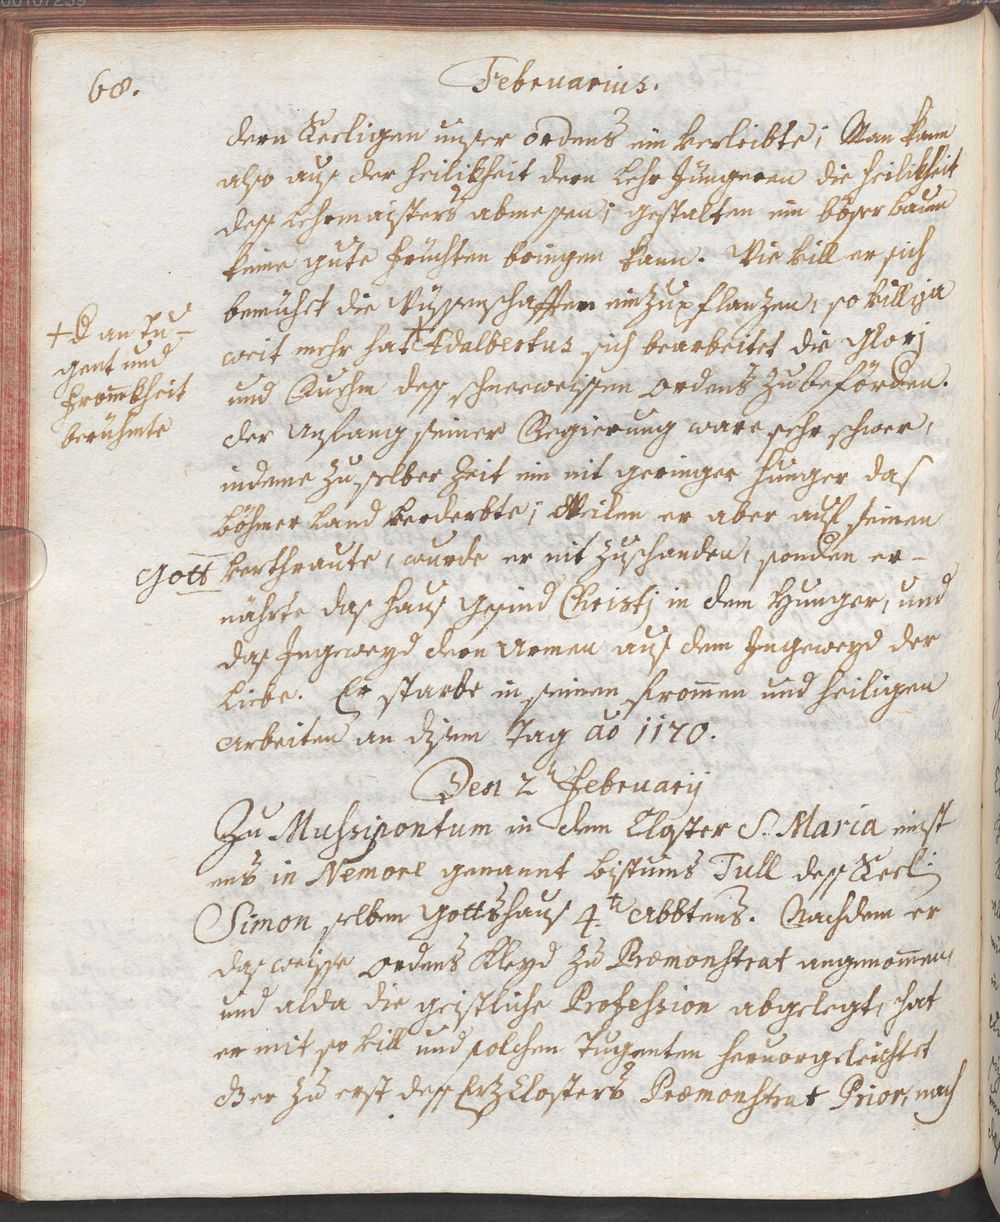 68.
Februarius.
dern Seeligen unser ordens ein verleibte; Man kann
also aus der heilikheit dern Lehr Jüngeren die heilikheit
dess Lehrmaisters abmessen; gestalten ein böser baum
keine gute früchten bringen kann. Wie vill er sich
bemühet die Wüssenschafften einzupflantzen, so vill ja
weit mehr hat + Adalbertus sich bearbeitet die Glorj
und Ruhm dess schneeweissen ordens zu beförden.
der Anfang seiner Regierung ware sehr schwer,
indeme zu selber Zeit ein nit geringer hunger das
Böhmer Land verderbte; Weilen er aber auf seinen
Gott verthraute, wurde er nit zuschanden, sonden er-
nährte das haus gesind Christj in dem Hunger, und
das Ingeweyd dern Armen aus dem Ingeweyd der
Liebe. Er starbe in seinen frommen und heiligen
arbeiten an disem Tag ao 1170.
+ d an Tu-
gent und
frommkheit
berühmte
Den 2ten Februarij
Zu Mussipontum in dem Closter S. Maria einst
ens in Nemore genannt bistums Tull dess Seel:
Simon selben Gottshaus 4ten Abbtens. Nachdem er
das weisse ordens Kleyd zu Præmonstrat angenommen,
und alda die geistliche Profession abgelegt, hat
er mit so vill und solchen Tugenten hervorgeleichtet
Der zu erst dess ErtzClosters Præmonstrat Prior, nach